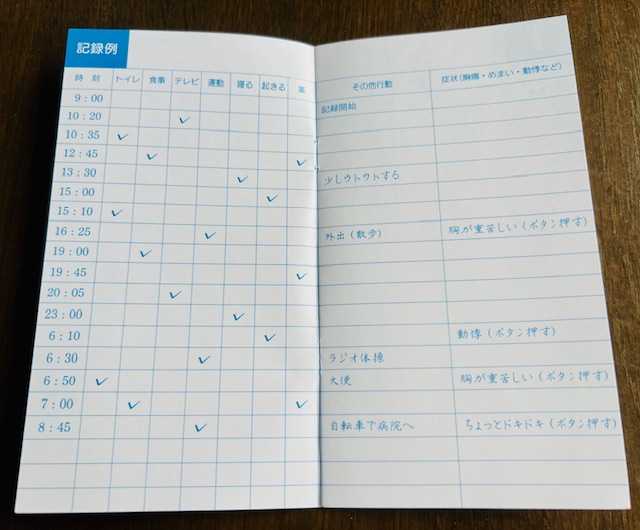 記録例
時 刻 トイレ 食事 テレビ 運動 寝る 起きる 薬 その他行動 症状(胸痛・めまい・動悸など)
9:00 記録開始
10:20 ✓
10:35 ✓
12:45 ✓ ✓
13:30 ✓ 少しウトウトする
15:00 ✓
15:10 ✓
16:25 ✓ 外出(散歩) 胸が重苦しい(ボタン押す)
19:00 ✓
19:45 ✓
20:05 ✓
23:00 ✓
6:10 ✓ 動悸(ボタン押す)
6:30 ✓ ラジオ体操
6:50 ✓ 大便 胸が重苦しい(ボタン押す)
7:00 ✓ ✓
8:45 ✓ 自転車で病院へ ちょっとドキドキ(ボタン押す)